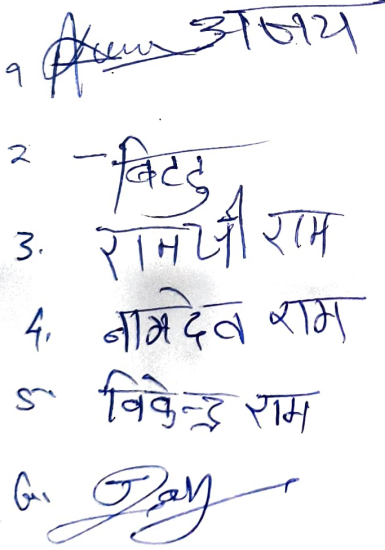 १ अजय
2 - बिटटु
3. रामजी राम
4. नामदेव राम
5 विकेन्द्र राम
6.